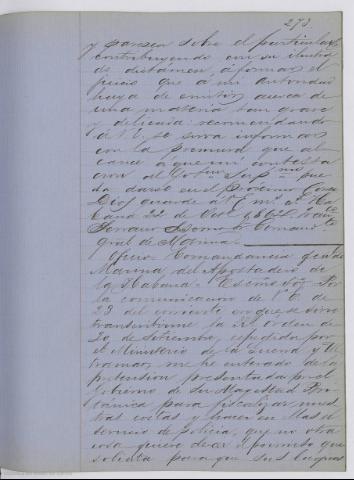 273.
y parecer sobre el particular,
contribuyendo con su ilustra
do dictámen, á formar el
juicio que á mi autoridad
haya de emitir, acerca de
una materia tan grave
y delicada recomendando
á V.E. se sirva informar
con la premura que al
cance á que mi contesta
cion al Gobno Supmo pue
da darse en el próximo Correo
Dios guarde á V.E. ms. as. Ha
bana 22 de Octe 1862. Franco
Serrano = Escmo Sr Comante
Gral de Marina.
Oficio. Comandancia Gral de
Marina del Apostadero de
la Habana. Escmo Sor. Por
la comunicacion de V.E. de
23 del corriente en que se sirve
transcribirme la Rl. Orden de
20 de Setiembre, espedida por
el Ministerio de la Guerra y Ul
tramar, me he enterado de la
pretension presentada por el
Gobierno de Su Magestad Bri
tánica para fiscalizar nues
tras costas y hacer en ellas el
servicio de policía, que no otra
cosa quiere decir el permiso que
solicita para que sus buques